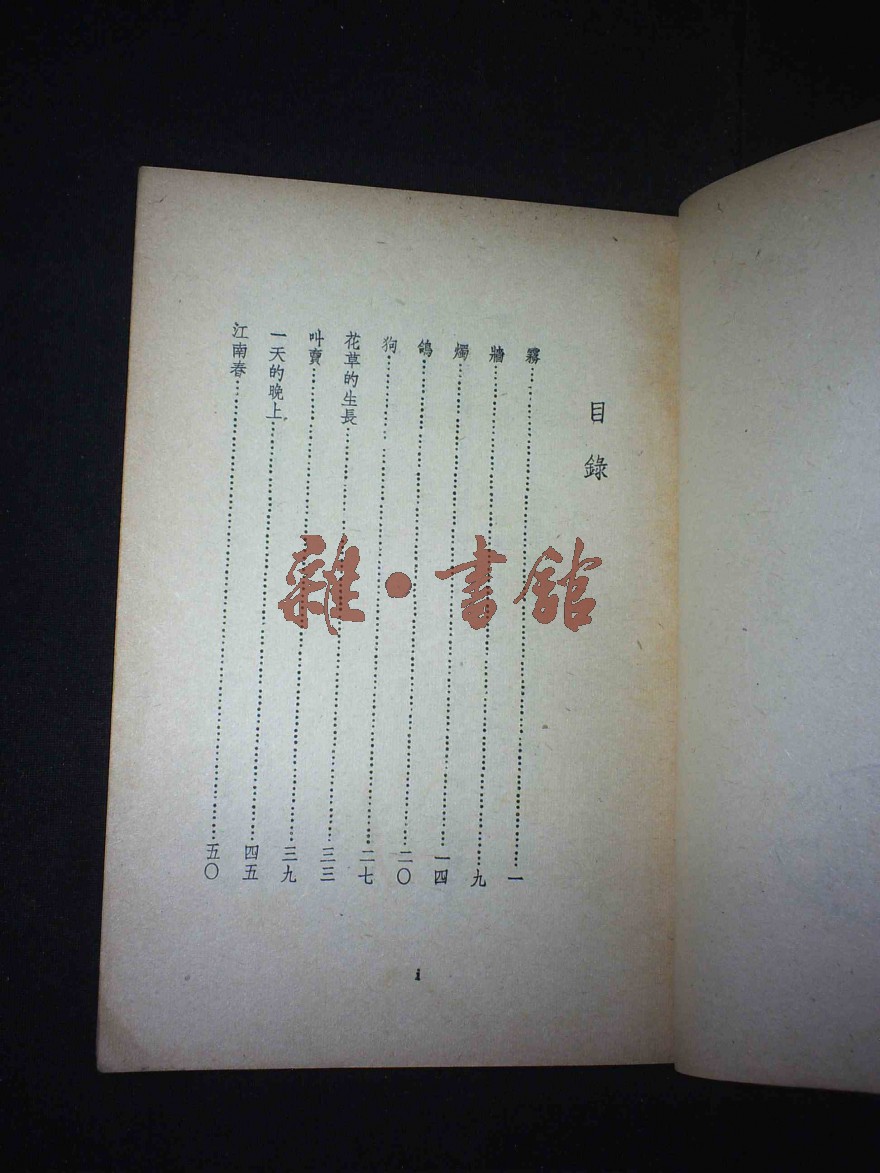 目錄
霧……一
牆……九
燭……一四
鴿……二〇
狗……二七
花草的生長……三三
叫賣……三九
一天的晚上……四五
江南春……五〇
i
雜·書館